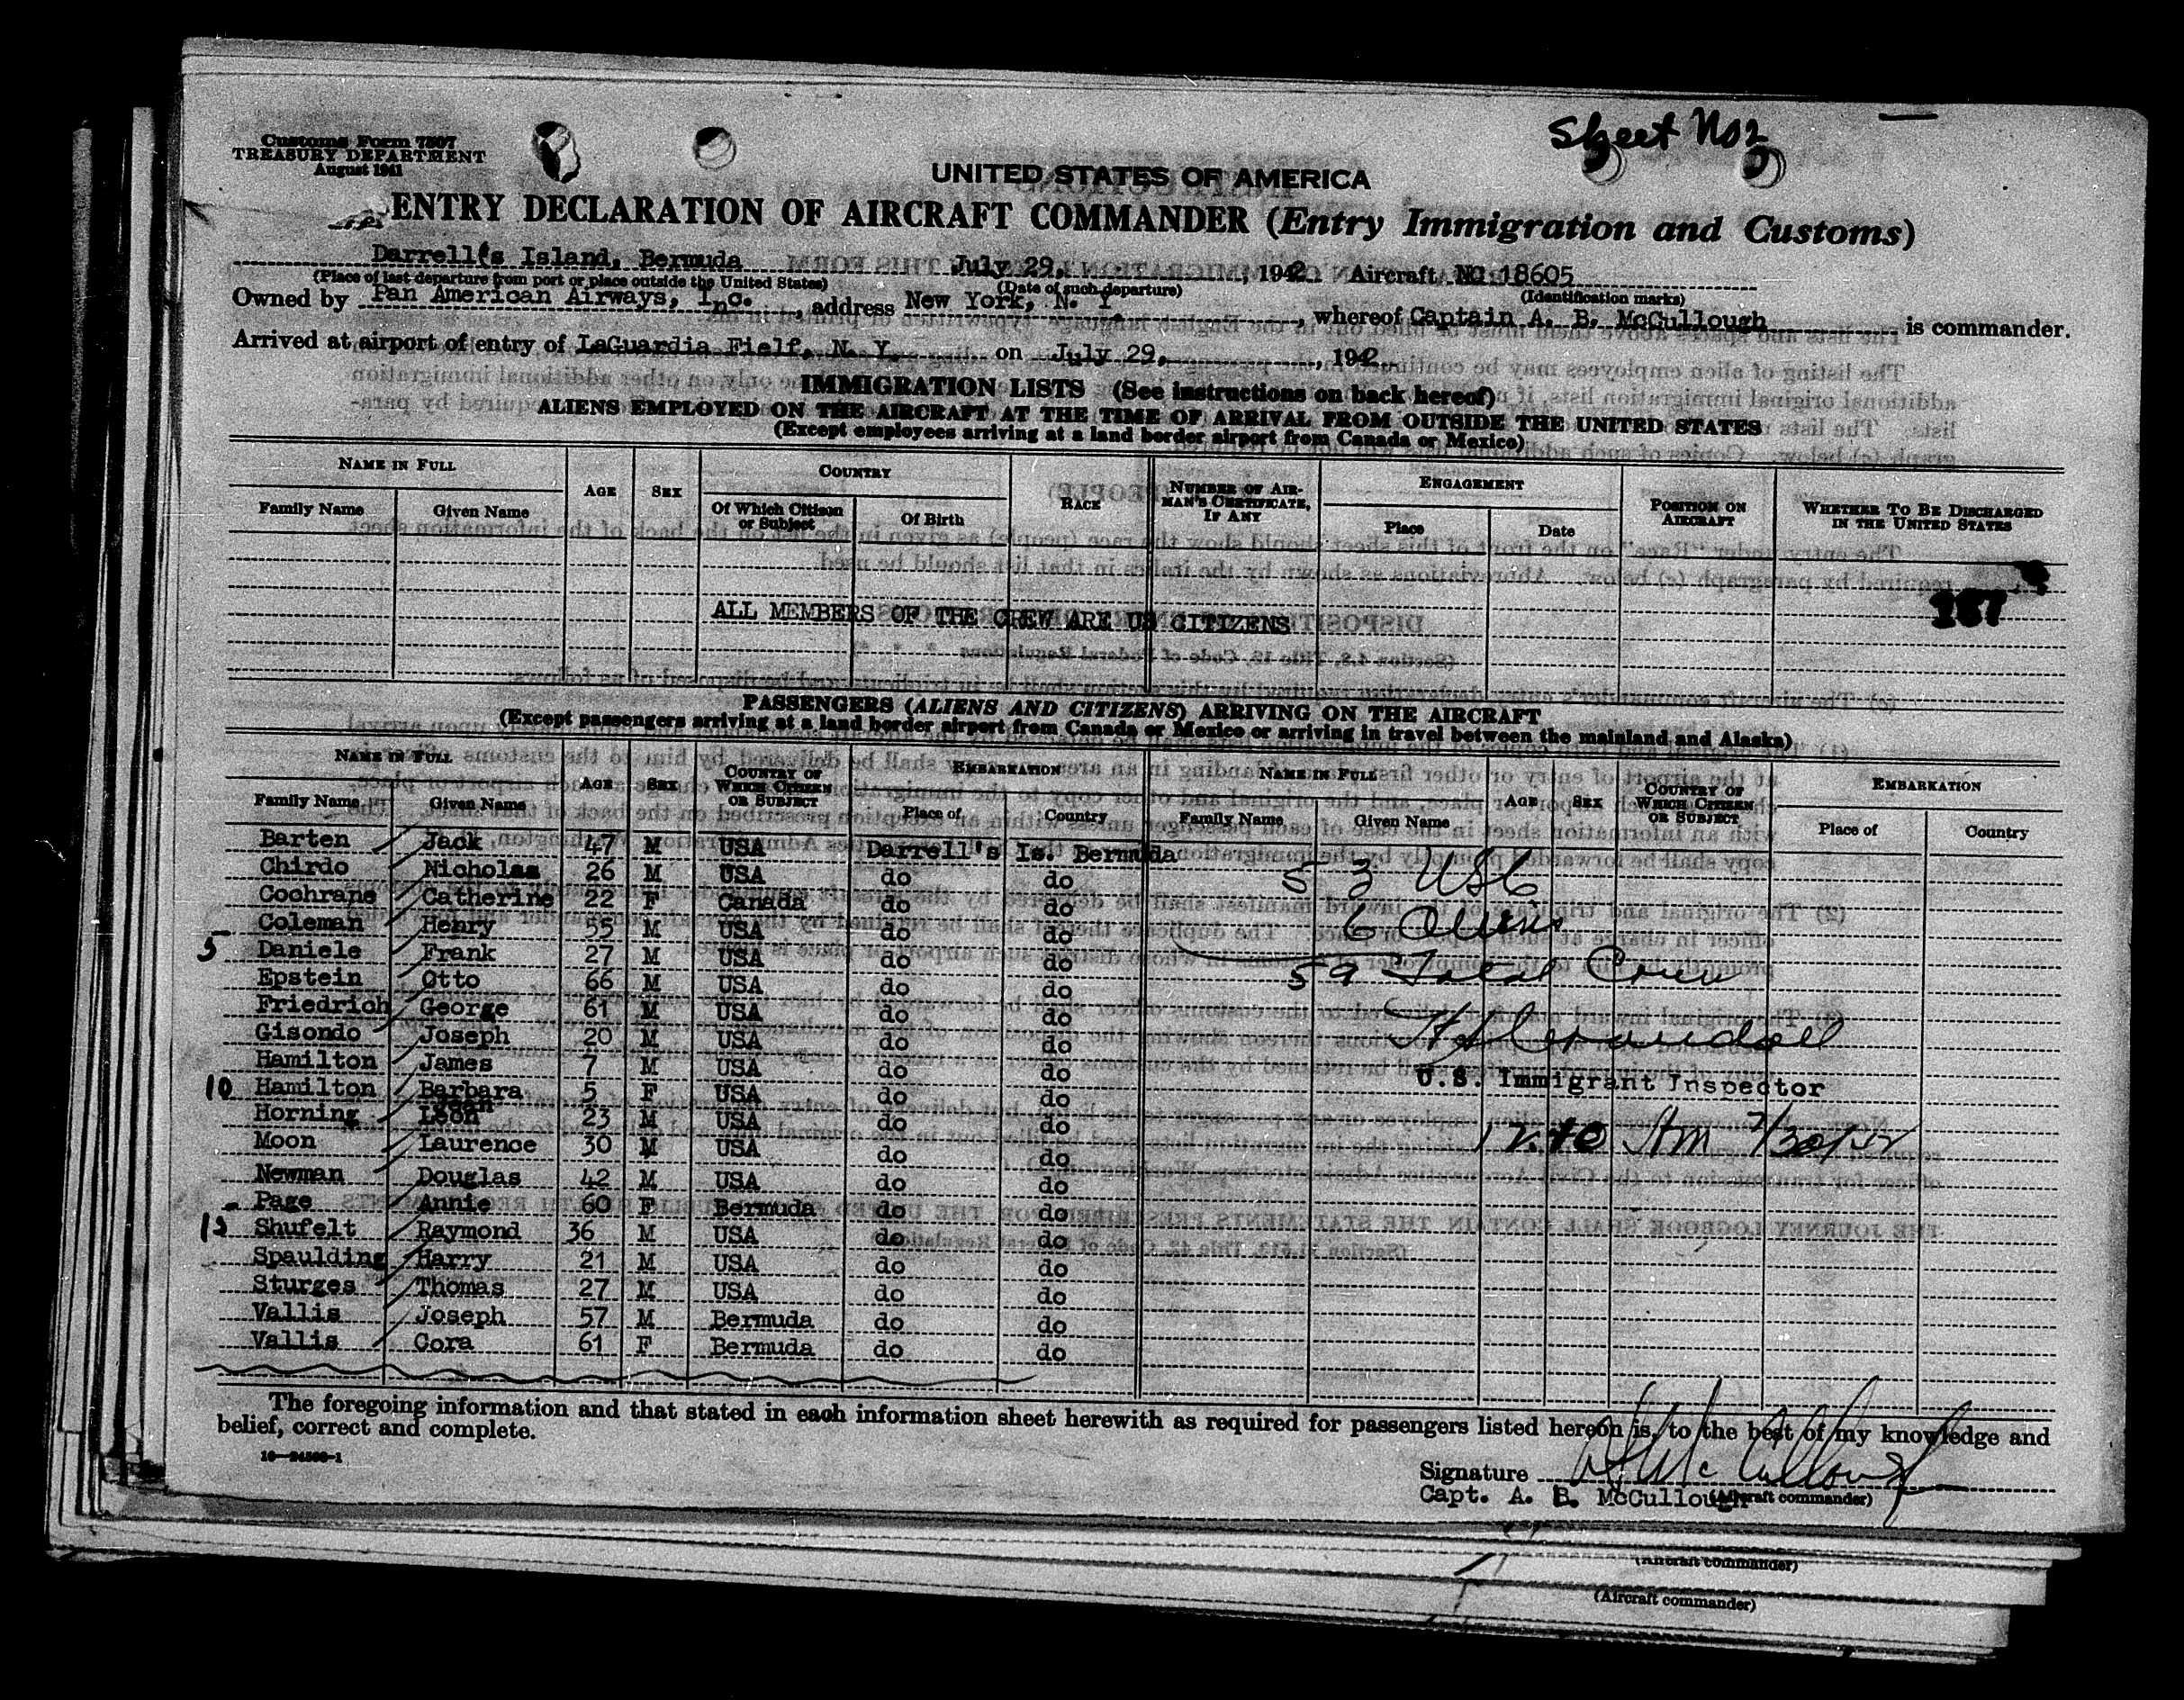 Sheet No 2
Customs Form 7507
TREASURY DEPARTMENT
August 1941
UNITED STATES OF AMERICA
ENTRY DECLARATION OF AIRCRAFT COMMANDER (Entry Immigration and Customs)
Darrell's Island, Bermuda July 29, 1942 Aircraft NC 18605
(Place of last departure from port or place outside the United States) (Date of such departure) (Identification marks)
Owned by Pan American Airways, Inc., address New York, N. Y., whereof Captain A. B. McCullough is commander.
Arrived at airport of entry of LaGuardia Fielf, N. Y. on July 29, 1942
IMMIGRATION LISTS (See instructions on back hereof)
ALIENS EMPLOYED ON THE AIRCRAFT AT THE TIME OF ARRIVAL FROM OUTSIDE THE UNITED STATES
(Except employees arriving at a land border airport from Canada or Mexico)
NAME IN FULL AGE SEX COUNTRY RACE NUMBER OF AIRMAN'S CERTIFICATE, IF ANY ENGAGEMENT POSITION ON AIRCRAFT WHETHER TO BE DISCHARGED IN THE UNITED STATES
Family Name Given Name Of Which Citizen or Subject Of Birth Place Date
167
ALL MEMBERS OF THE CREW ARE US CITIZENS
PASSENGERS (ALIENS AND CITIZENS) ARRIVING ON THE AIRCRAFT
(Except passengers arriving at a land border airport from Canada or Mexico or arriving in travel between the mainland and Alaska)
NAME IN FULL AGE SEX COUNTRY OF WHICH CITIZEN OR SUBJECT EMBARKATION NAME IN FULL AGE SEX COUNTRY OF WHICH CITIZEN OR SUBJECT EMBARKATION
Family Name Given Name Place of Country Family Name Given Name Place of Country
Barten Jack 47 M USA Darrell's Is. Bermuda
Chirdo Nicholas 26 M USA do do 53 USC
Cochrane Catherine 22 F Canada do do
Coleman Henry 55 M USA do do 6 Aliens
5 Daniele Frank 27 M USA do do
Epstein Otto 66 M USA do do 59 Total
Friedrich George 61 M USA do do
Gisondo Joseph 20 M USA do do
Hamilton James 7 M USA do do
10 Hamilton Barbara 5 F USA do do U.S. Immigrant Inspector
Horning Leon 23 M USA do do
Moon Laurence 30 M USA do do 12.40 AM 7/30/42
Newman Douglas 42 M USA do do
Page Annie 60 F Bermuda do do
15 Shufelt Raymond 36 M USA do do
Spaulding Harry 21 M USA do do
Sturges Thomas 27 M USA do do
Vallis Joseph 57 M Bermuda do do
Vallis Cora 61 F Bermuda do do
The foregoing information and that stated in each information sheet herewith as required for passengers listed hereon is, to the best of my knowledge and
belief, correct and complete.
16—24508-1
Signature A B McCullough
Capt. A. B. McCullough (Aircraft commander)
(Aircraft commander)
(Aircraft commander)